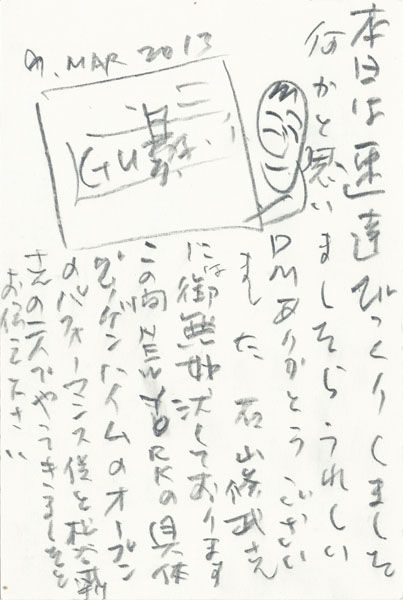 本日は速達びっくりしました
何かと思いましたらうれしい
DMありがとうござい
ました 石山修武さん
には御無沙汰しております
この間NEW YORKの具体
グッゲンハイムのオープン
のパフォーマンス僕と松
さんの二人でやってきましたと
お伝え下さい
9. MAR 2013
GU